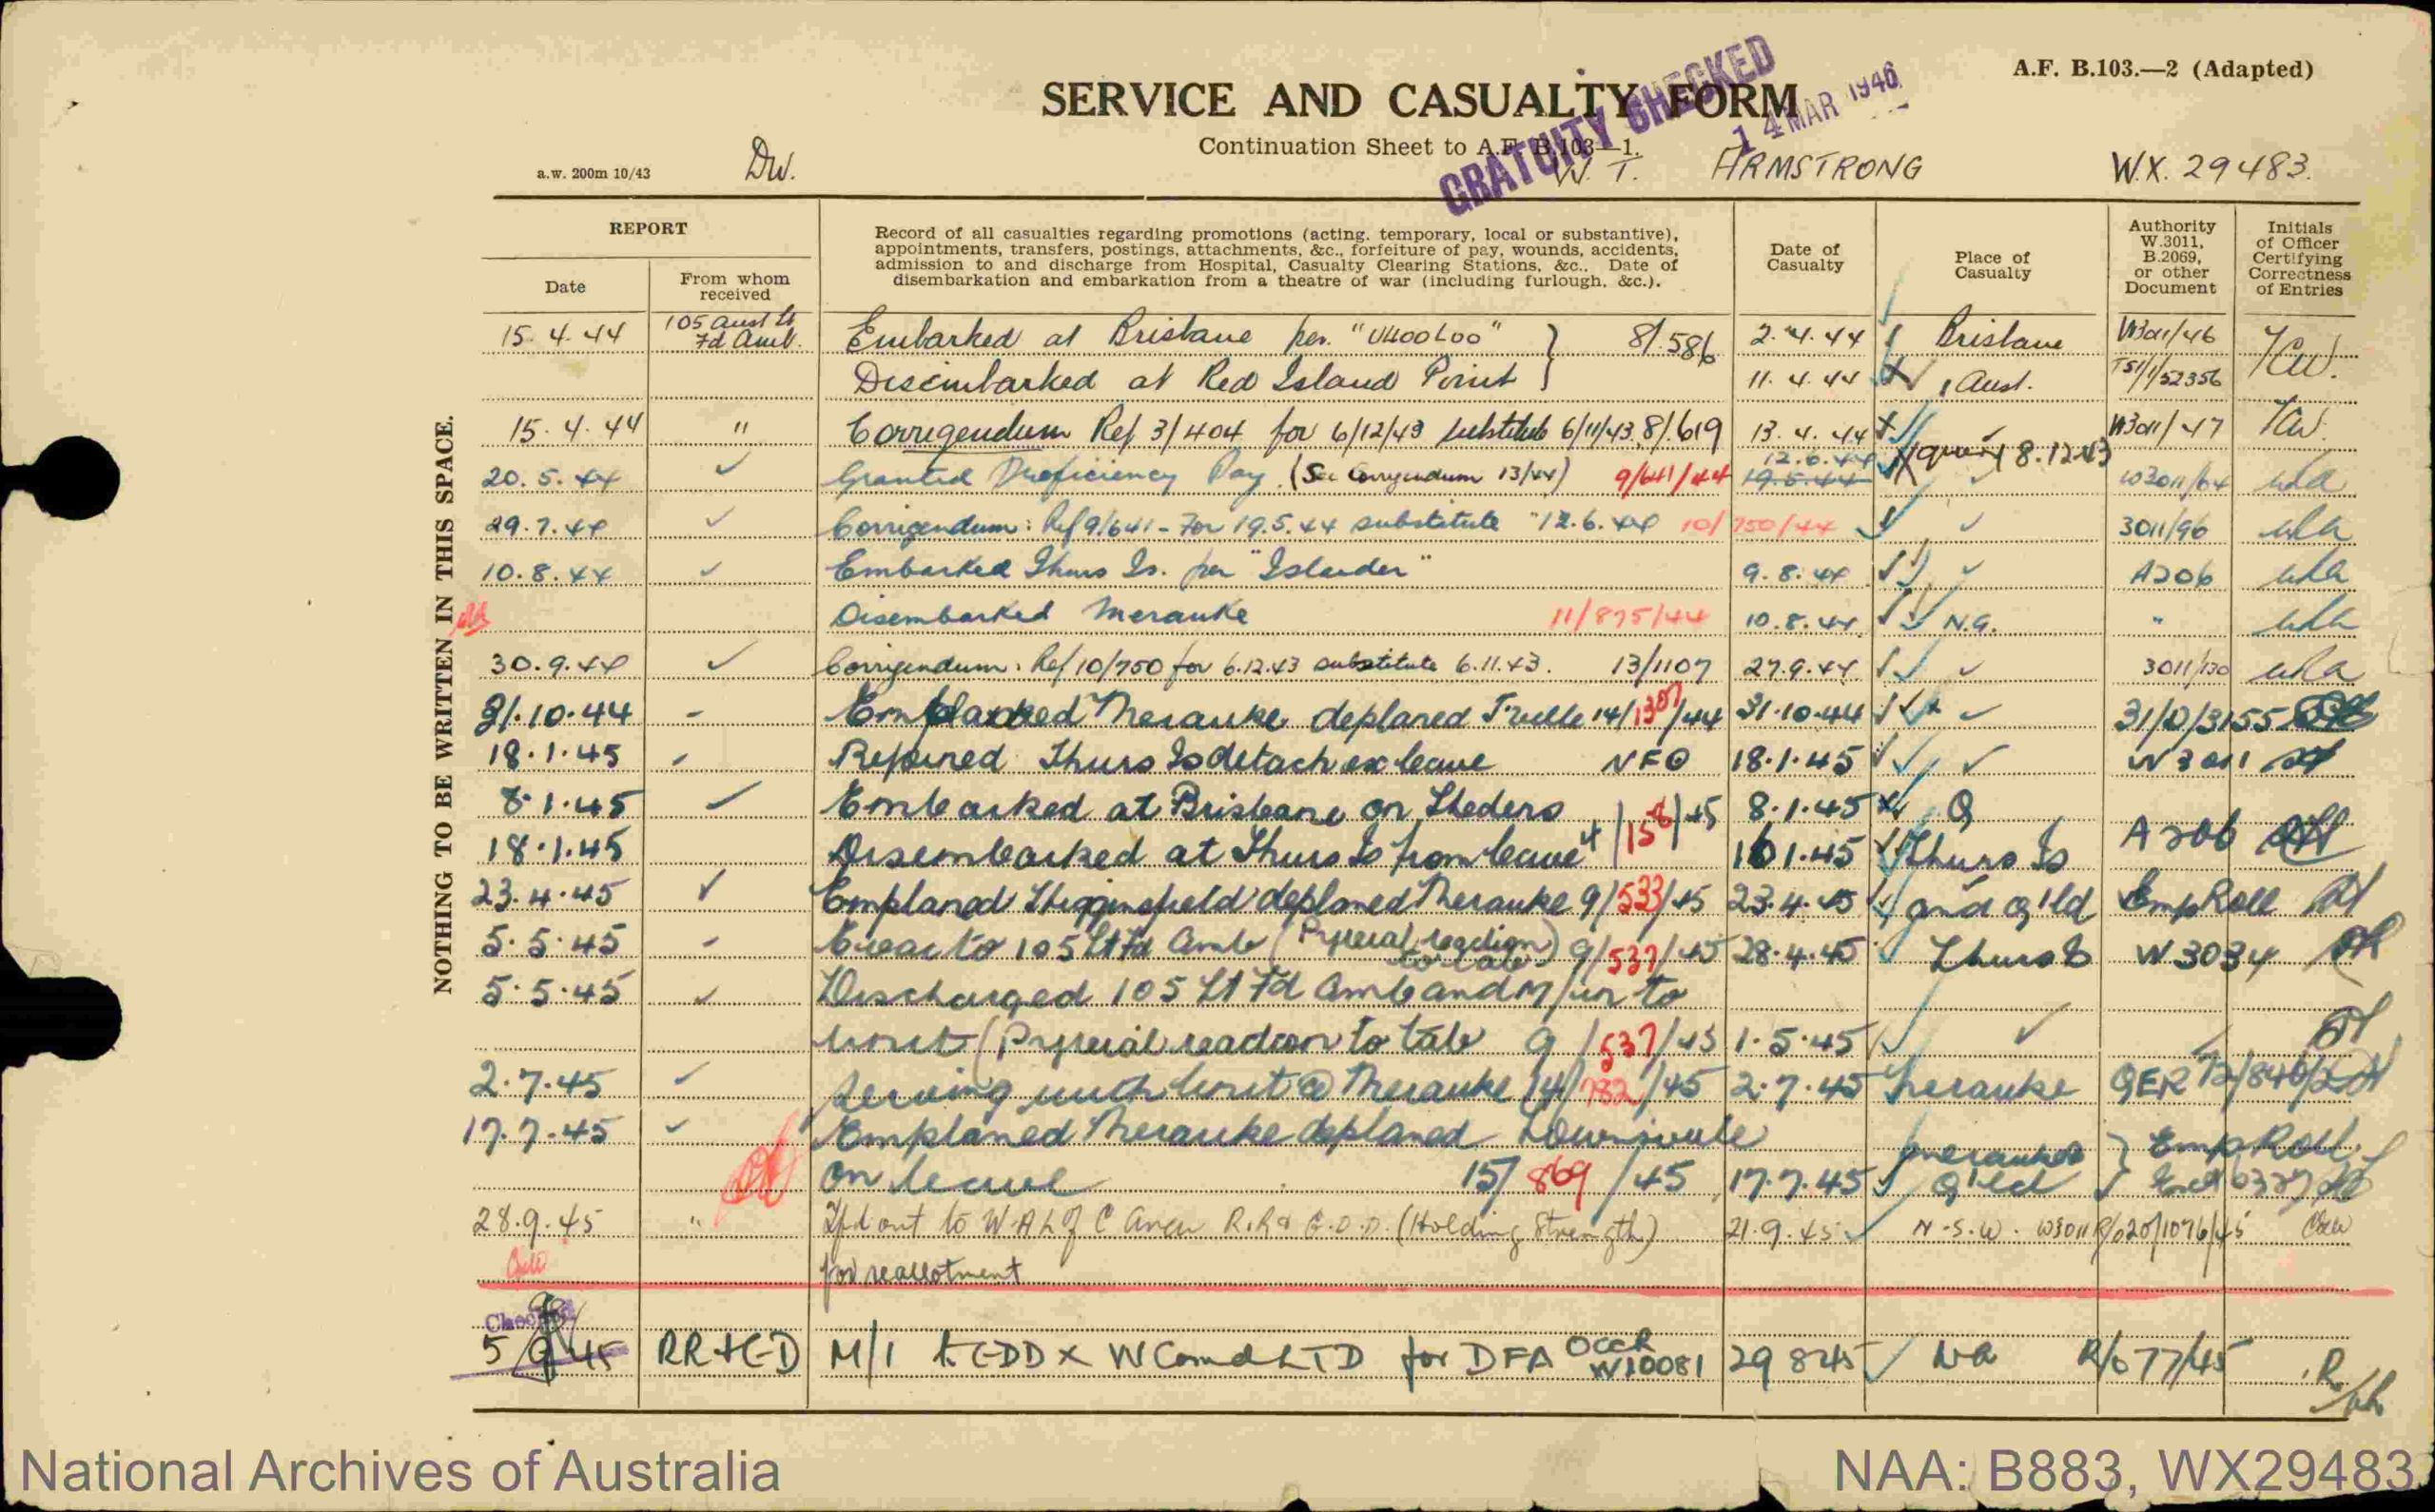 A.F. B.103.—2 (Adapted)
SERVICE AND CASUALTY FORM
GRATUITY CHECKED
14 MAR 1946
Continuation Sheet to A.F. B.103—1.
a.w. 200m 10/43 DW. W. T. ARMSTRONG W.X. 29483.
NOTHING TO BE WRITTEN IN THIS SPACE.
REPORT
Date
From whom received
Record of all casualties regarding promotions (acting, temporary, local or substantive),
appointments, transfers, postings, attachments, &c., forfeiture of pay, wounds, accidents,
admission to and discharge from Hospital, Casualty Clearing Stations, &c. Date of
disembarkation and embarkation from a theatre of war (including furlough, &c.).
Date of Casualty
Place of Casualty
Authority W.3011, B.2069, or other Document
Initials of Officer Certifying Correctness of Entries
15.4.44 105 Aust Lt Fd Amb. Embarked at Brisbane per "ULOOLOO" 8/586 2.4.44 Brisbane W3011/46
Disembarked at Red Island Point 11.4.44 Aust. TS1/1/52356
15.4.44 " Corrigendum Ref 3/404 for 6/12/43 substitute 6/11/43 8/619 13.4.44 W3011/47
20.5.44 Granted Proficiency Pay. (See Corrigendum 13/44) 9/641/44 19.5.44 12.6.44 query 8.12.43 W3011/64
29.7.44 Corrigendum: Ref 9/641 - For 19.5.44 substitute "12.6.44 10/750/44 3011/96
10.8.44 Embarked Thurs Is. per "Islander" 9.8.44 A206
Disembarked Merauke 11/875/44 10.8.44 N.G. "
30.9.44 Corrigendum: Ref 10/750 for 6.12.43 substitute 6.11.43. 13/1107 27.9.44 3011/130
31.10.44 Emplaned Merauke deplaned T'ville 14/1307/44 31.10.44 31/D/3155
18.1.45 Rejoined Thurs Is detach ex leave NFO 18.1.45 W3011
8.1.45 Embarked at Brisbane on 4/158/45 8.1.45 Q
18.1.45 Disembarked at Thurs Is from leave 16.1.45 Thurs Is A206
23.4.45 Emplaned Higginsfield deplaned Merauke 9/533/45 23.4.45 Q'ld Emp Roll
5.5.45 Evac to 105 Lt Fd Amb (Pyrexial reaction to tab) 9/537/45 28.4.45 Thurs Is W3034
5.5.45 Discharged 105 Lt Fd Amb and M/in to
Unit (Pyrexial reaction to tab) 9/537/45 1.5.45
2.7.45 Serving with Unit @ Merauke 14/782/45 2.7.45 Merauke QER 72/846/2
17.7.45 Emplaned Merauke deplaned Townsville Merauke Emp Roll
on leave 15/869/45 17.7.45 Q'ld
28.9.45 " Tfd out to W.A. L of C Area R.R & G.D.D. (Holding Strength) 21.9.45 N.S.W. W3011 R/020/1076/45
for reallotment
Checked
5/9/45 RR+GD M/I t. GDD X W Comd LTD for DFA OCCR W10081 29 8 45 WA R/677/45
National Archives of Australia
NAA: B883, WX29483